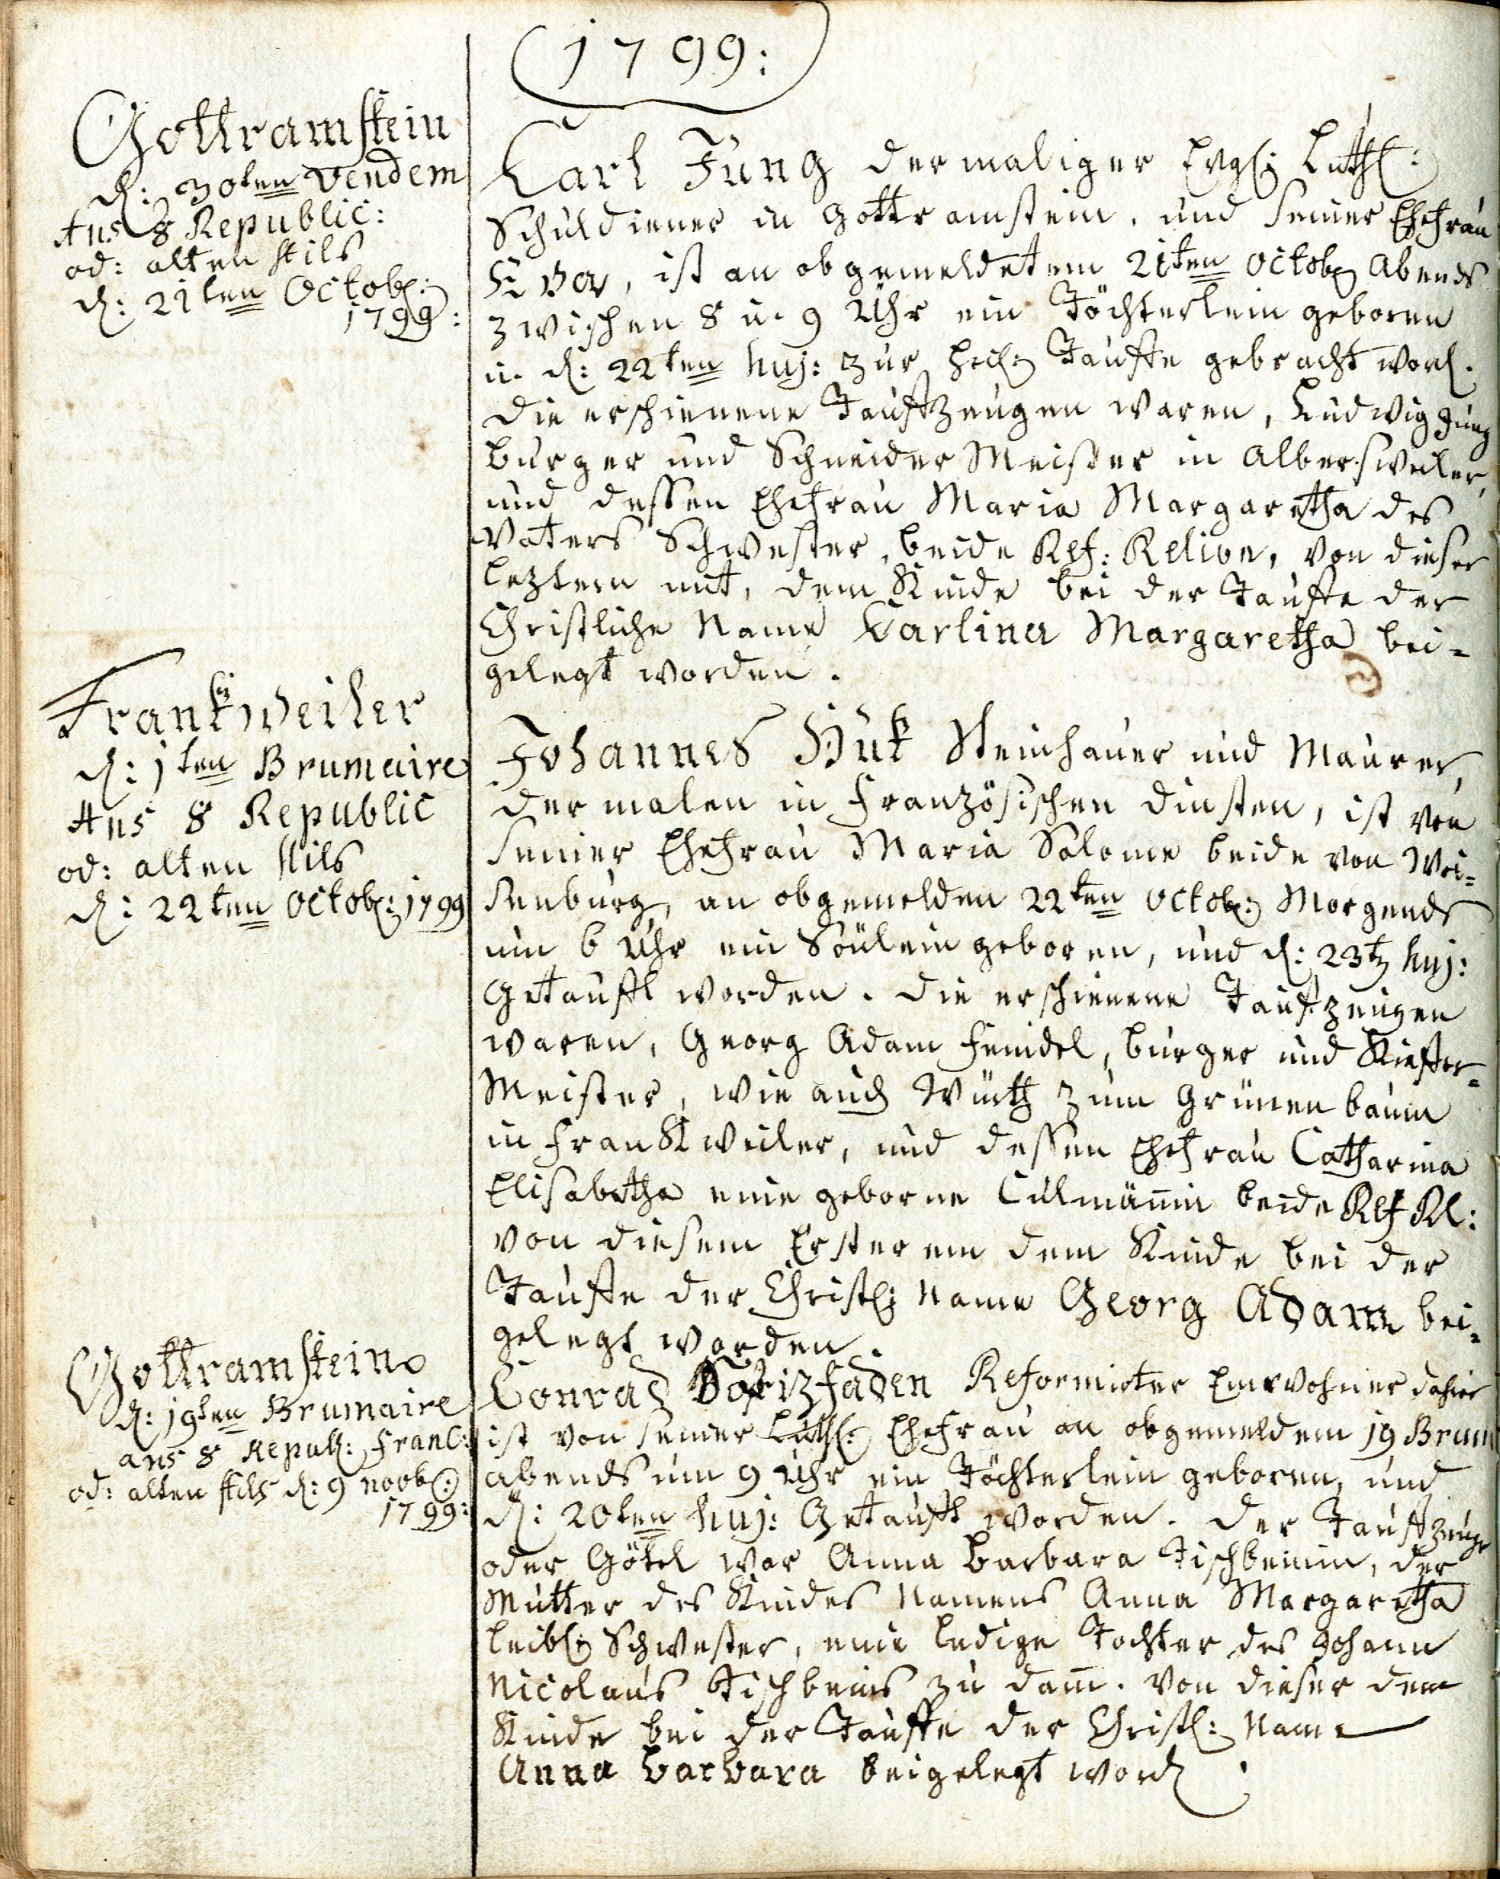 1799:
Gottramstein
d: 30ten Vendem
Ans 8 Republic:
od: alten Stils
d: 21ten Octob:
1799:
Carl Jung dermaliger Evgl: Luthl:
Schuldiener in Gottramstein, und seiner Ehefrau
Eva, ist an obgemeldetem 21ten Octob Abends
zwischen 8 u. 9 Uhr ein Töchterlein geboren
u. d: 22ten huj: zur heil: Tauffe gebracht word.
Die erschienene Taufzeugen waren, Ludwig Jung
burger und Schneider Meister in Albersweiler,
und dessen Ehefrau Maria Margaretha des
Vaters Schwester, beide Ref: Relion, von dieser
leztern mit, dem Kinde bei der Tauffe der
Christliche Name Carlina Margaretha bei=
gelegt worden.
Frankweiler
d: 1ten Brumaire
Ans 8 Republic
od: alten Stils
d: 22ten Octob: 1799
Johannes Huk Steinhauer und Maurer,
dermalen in Französischen dinsten, ist von
seiner Ehefrau Maria Salome beide von Wei=
senburg, an obgemelden 22ten Octob: Morgends
um 6 Uhr ein Söulein geboren, und d: 23t huj:
Getaufft worden. die erschienene Taufzeugen
waren, Georg Adam Feindel, burger und Kieffer=
Meister, wie auch Würth zum Grünen baum
in Frankweiler, und dessen Ehefrau Catharina
Elisabetha eine geborne Culmännin beide Ref Rel:
von diesem Ersterem dem Kinde bei der
Tauffe der Christl: Name Georg Adam bei=
gelegt worden.
Gottramstein
d: 19ten Brumaire
ans 8 Republ: Franc:
od: alten stils d: 9 novb:
1799:
Conrad Reformirter Einwohner dahier
ist von seiner Luthl: Ehefrau an obgemeldem 19 Brum
abends um 9 Uhr ein Töchterlein geboren, und
d: 20ten huj: Getauft worden. Der Taufzeuge
oder Götel war Anna Barbara Tischbeinin, der
Mutter des Kindes Namens Anna Margaretha
leibl: Schwester, eine ledige Tochter des Johann
Nicolaus Tischbeins zu dam̅. Von dieser dem
Kinde bei der Tauffe der Christl: Name
Anna Barbara beigelegt word